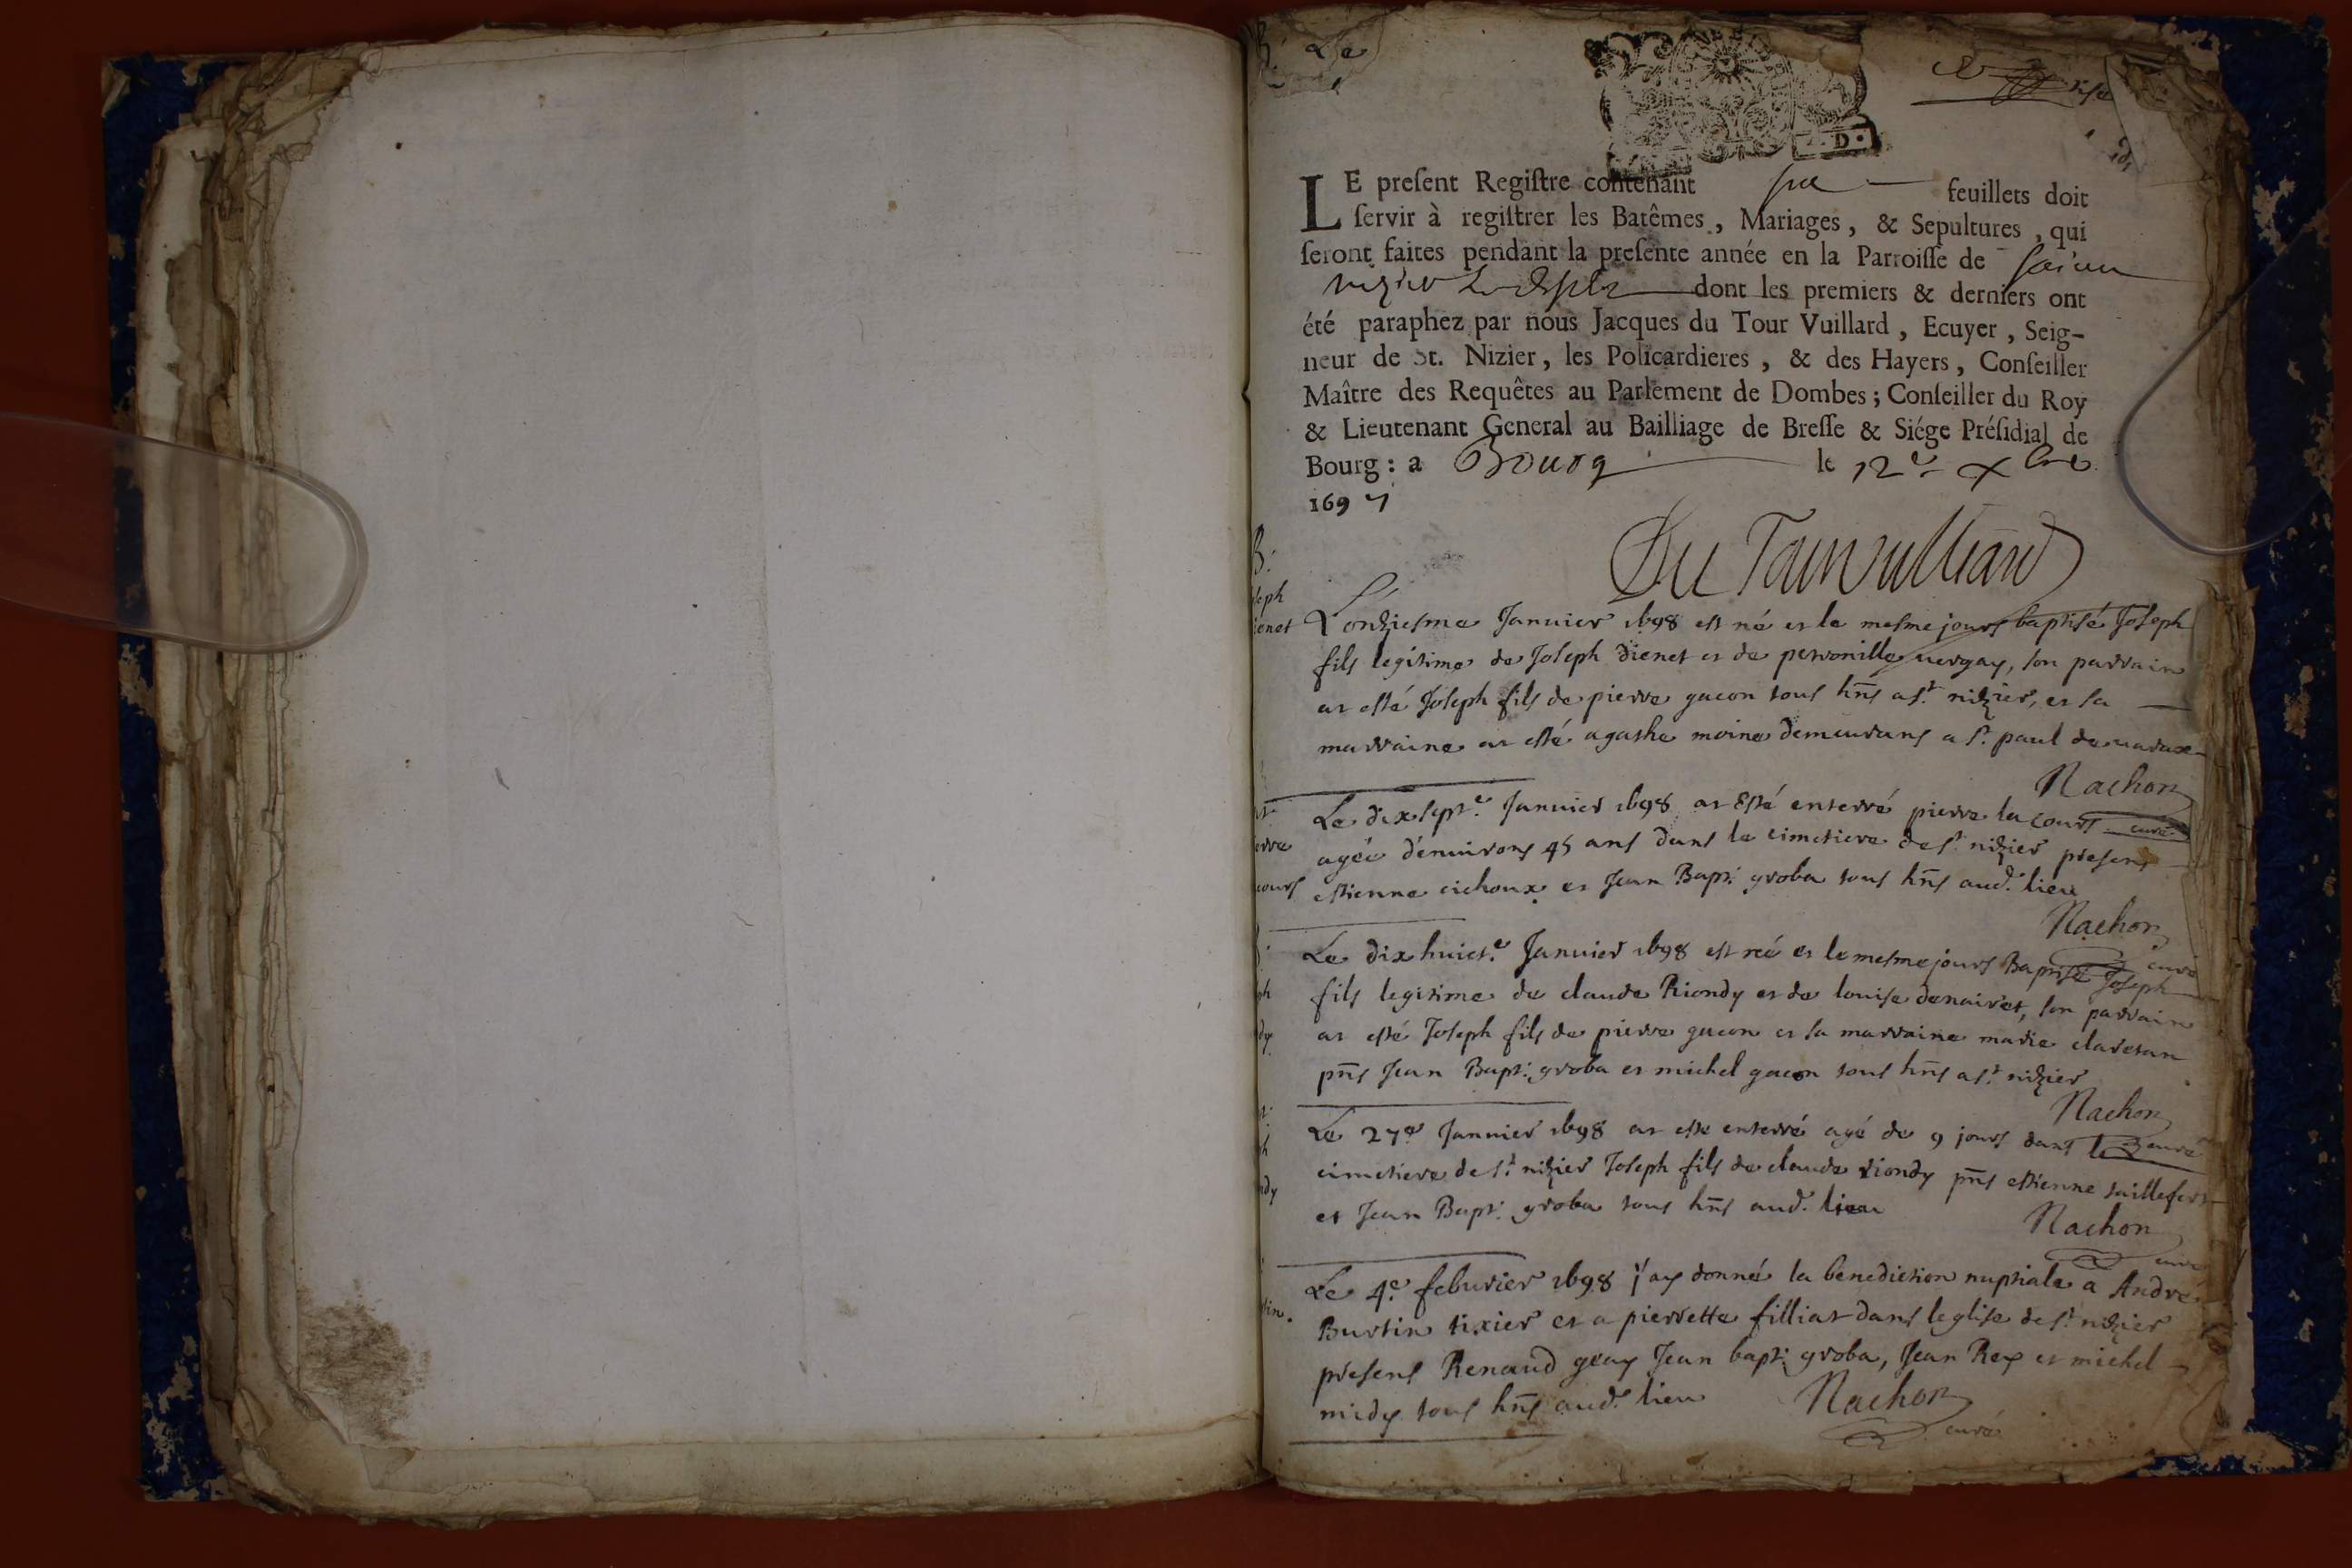 B. Le
LE preſent Regiſtre contenant six feuillets doit
ſervir à regiſtrer les Batêmes, Mariages, & Sepultures, qui
ſeront faites pendant la preſente année en la Parroiſſe de sainct
nizier le desert dont les premiers & derniers ont
été paraphez par nous Jacques du Tour Vuillard, Ecuyer, Seig-
neur de St. Nizier, les Policardieres, & des Hayers, Conſeiller
Maître des Requêtes au Parlement de Dombes; Conſeiller du Roy
& Lieutenant General au Bailliage de Breſſe & Siége Préſidial de
Bourg: a Bourg le 12e xbre
1697
Du Tour Vulliard
B.
seph
ienet
L'onziesme Januier 1698 est né et le mesme jours baptisé Joseph
fils legitime de Joseph Dienet et de peronille uergay, son parrain
at esté Joseph fils de pierre gacon tous hñs a st nizier, et sa
marraine at esté agathe moine demeurans a st paul de uarax
Nachon
curé
Le dix sept.e Januier 1698 at Esté enterré pierre la cours
agée d'enuirons 45 ans dans le cimetiere de st nizier presens
estienne cichoux et Jean Bapt. groba tous hñs aud. lieu
erre
cours
Nachon
curé
Le dix huict.e Januier 1698 est né et le mesme jours Baptisé Joseph
fils legitime de claude Riondy et de louise denairet, son parrain
at esté Joseph fils de pierre gacon et sa marraine marie claretan
pñs Jean Bapt. groba et michel gacon tous hñs a st nizier
ph
dy
Nachon
curé
Le 27e Januier 1698 at este enterré agé de 9 jours dans le
cimetiere de st nizier Joseph fils de claude riondy pñs estienne taillefert
et Jean Bapt. groba tous hñs aud. lieu
h
ndy
Nachon
curé
Le 4e feburier 1698 j'ay donné la benediction nuptiale a André
Burtin tixier et a pierrette filliat dans leglise de st nizier
presens Renaud geay Jean bapt. groba, Jean Rey et michel
midy tous hñs aud. lieu
tin.
Nachon
curé